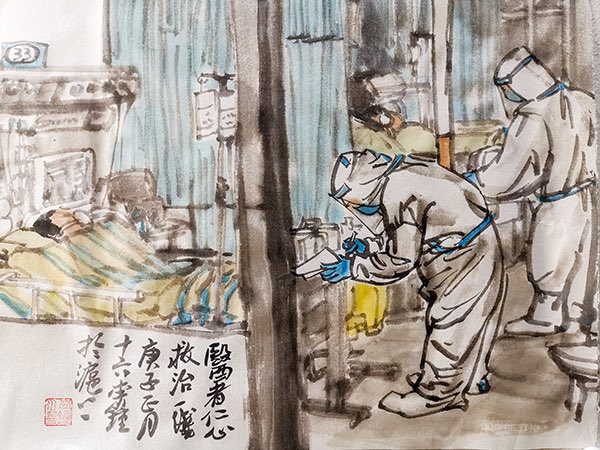 33
醫者仁心
救治一
庚子正月
十六
於滬上